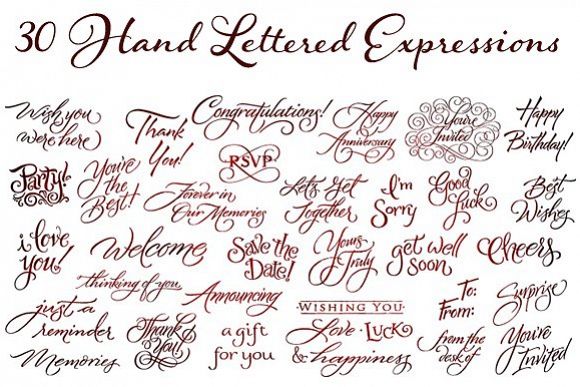 30 Hand Lettered Expressions
Wish you
were here
Thank
You!
Congratulations!
Happy
Anniversary
You're
Invited
Happy
Birthday!
Party!
You're
the
Best!
RSVP
Forever in
Our Memories
Let's Get
Together
I'm
Sorry
Good
Luck
Best
Wishes
i love
you!
Welcome
Save the
Date!
Yours
Truly
get well
soon
Cheers
thinking of you
Announcing
WISHING YOU
Love · LUCK
& happiness
To:
From:
Surprise
just a
reminder
Thank
You!
a gift
for you
from the
desk of
You're
Invited
Memories